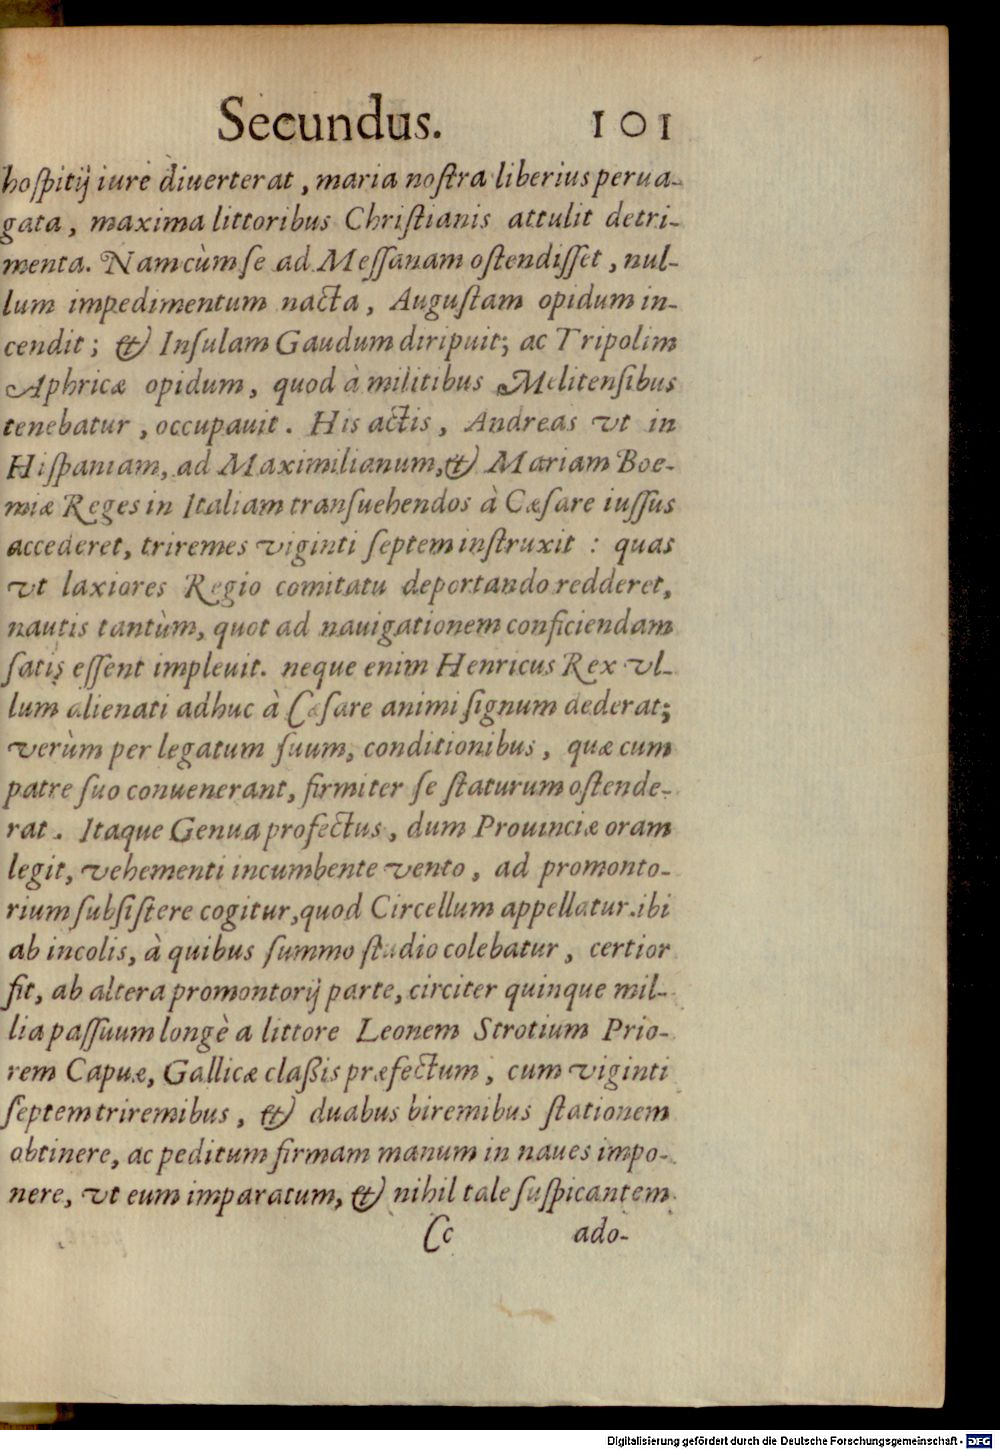 Secundus. 101
hoſpitij iure diuerterat, maria noſtra liberius perua-
gata, maxima littoribus Chriſtianis attulit detri-
menta. Nam cùm ſe ad Meſſanam oſtendiſſet, nul-
lum impedimentum nacta, Auguſtam opidum in-
cendit; & Inſulam Gaudum diripuit; ac Tripolim
Aphricæ opidum, quod à militibus Melitenſibus
tenebatur, occupauit. His actis, Andreas vt in
Hiſpaniam, ad Maximilianum, & Mariam Boe-
miæ Reges in Italiam tranſuehendos à Cæſare iuſſus
accederet, triremes viginti ſeptem inſtruxit: quas
vt laxiores Regio comitatu deportando redderet,
nautis tantùm, quot ad nauigationem conficiendam
ſatis eſſent impleuit. neque enim Henricus Rex vl-
lum alienati adhuc à Cæſare animi ſignum dederat;
verùm per legatum ſuum, conditionibus, quæ cum
patre ſuo conuenerant, firmiter ſe ſtaturum oſtende-
rat. Itaque Genua profectus, dum Prouinciæ oram
legit, vehementi incumbente vento, ad promonto-
rium ſubſiſtere cogitur, quod Circellum appellatur. ibi
ab incolis, à quibus ſummo ſtudio colebatur, certior
fit, ab altera promontorij parte, circiter quinque mil-
lia paſſuum longè a littore Leonem Strotium Prio-
rem Capuæ, Gallicæ claßis præfectum, cum viginti
ſeptem triremibus, & duabus biremibus ſtationem
obtinere, ac peditum firmam manum in naues impo-
nere, vt eum imparatum, & nihil tale ſuſpicantem
Cc ado-
Digitalisierung gefördert durch die Deutsche Forschungsgemeinschaft - DFG